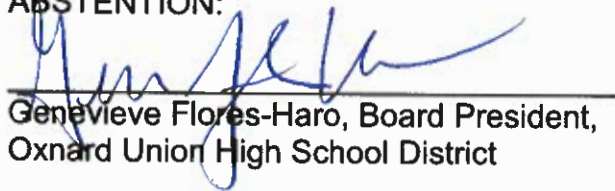 ABSTENTION:
Genevieve Flores-Haro, Board President,
Oxnard Union High School District